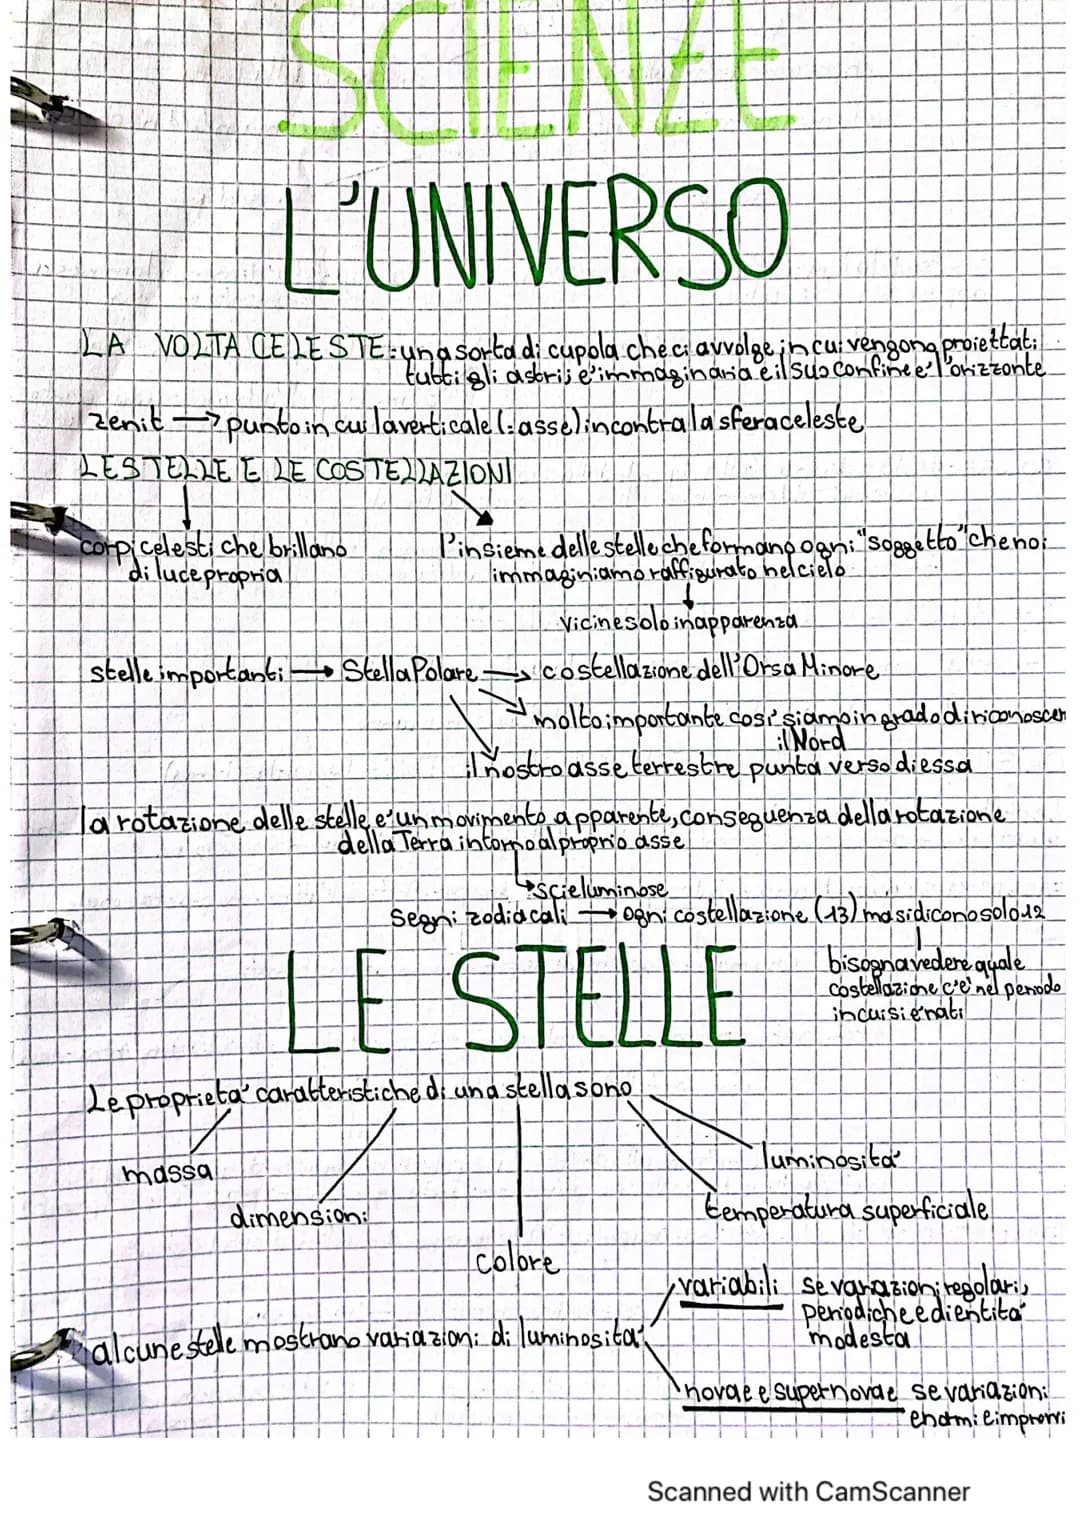 SCIENZE
L'UNIVERSO
LA VOLTA CELESTE: una sorta di cupola che ci avvolge, in cui vengono proiettati
tutti gli astri; è immaginaria e il suo confine è l'orizzonte
zenit → punto in cui la verticale (: asse) incontra la sfera celeste
LE STELLE E LE COSTELLAZIONI
corpi celesti che brillano
di luce propria
l'insieme delle stelle che formano ogni "soggetto" che noi
immaginiamo raffigurato nel cielo
vicine solo in apparenza
stelle importanti → Stella Polare → costellazione dell'Orsa Minore
molto importante così siamo in grado di riconoscer
il Nord
il nostro asse terrestre punta verso di essa
la rotazione delle stelle è un movimento apparente, conseguenza della rotazione
della Terra intorno al proprio asse
scie luminose
segni zodiacali → ogni costellazione (13) ma si dicono solo 12
bisogna vedere quale
costellazione c'è nel periodo
in cui si è nati
LE STELLE
Le proprietà caratteristiche di una stella sono
massa
dimensioni
colore
temperatura superficiale
luminosità
alcune stelle mostrano variazioni di luminosità:
variabili se variazioni regolari,
periodiche e di entità
modesta
novae e supernovae se variazioni
enormi e improvvi
Scanned with CamScanner